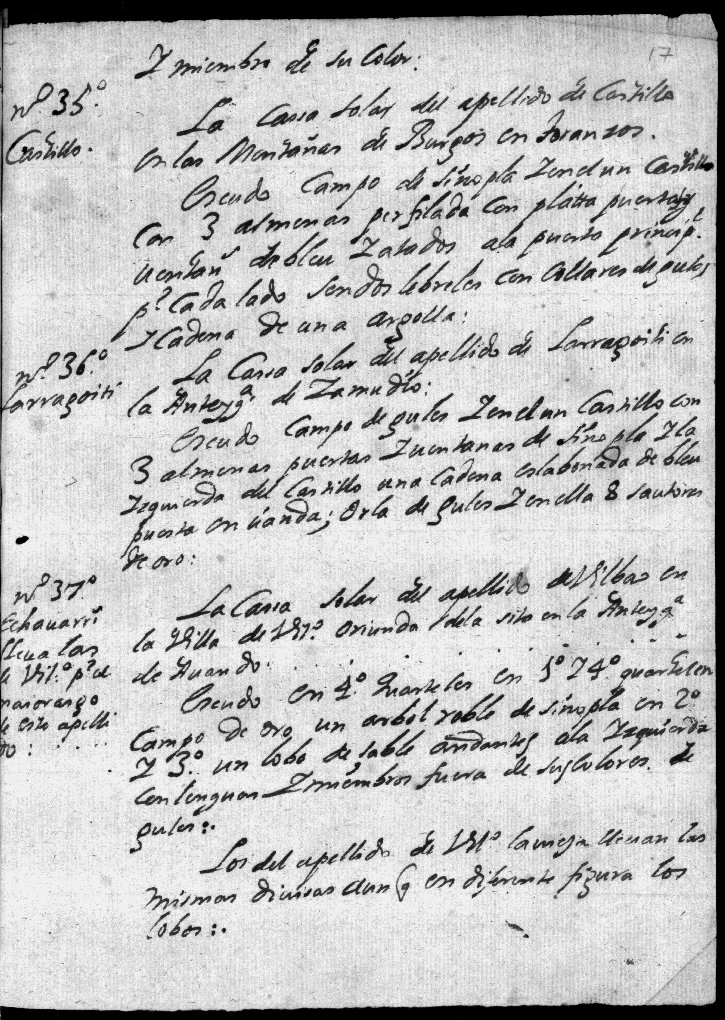 17
Y miembro de su Color:
nº 35º
Castillo.
La Cassa Solar del apellido de Castillo
en las Montañas de Burgos en toranzos.
Escudo Campo de sinopla Y en el un Castillo
Con 3 almenas perfilada con platta puertas y
uentanˢ de bleu Y atados a la puerta principˡ
pʳ Cada lado sendos lebreles con Collares de gules,
Y Cadena de una argolla:
nº 36º
Larragoiti
La Cassa solar del apellido de Larragoiti en
la Anteygᵃ de Zamudio:
Escudo Campo de gules Y en el un Castillo con
3 almenas puertas Y uentanas de sinopla Y la
Izquierda del Castillo una Cadena eslabonada de bleu
puesta en uanda; Orla de gules Y en ella 8 sautores
de oro:
nº 37º
Echauarri
lleua las
de Vilº pʳ el
maiorazgo
de este apelli
do:
La Cassa solar del apellido de Vilbao en
la Villa de Vilº oriunda de la sita en la Anteygᵃ
de Auando.
Escudo en 4º quarteles en 1º Y 4º quartel en
Campo de oro un arbol roble de sinopla en 2º
Y 3º un lobo de sable andantes a la Izquierda
Con lenguas Y miembros fuera de sus colores de
gules:.
Los del apellido de Vilº la vieja lleuan las
mismas diuisas aun q en diferente figura los
lobos:.